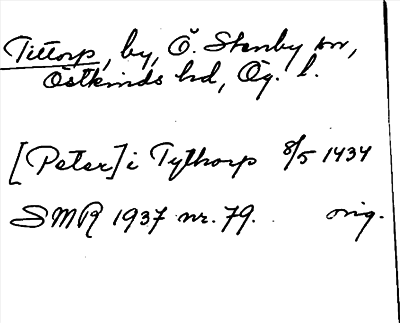 Tittorp, by, Ö. Stenby sn,
Östkinds hd, Ög. l.
[Peter] i Tythorp 8/5 1434
SMR 1937 nr. 79. orig.